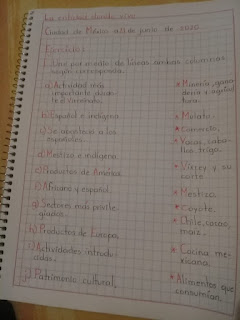 La cultura donde vivo
Ciudad de México a 23 de junio de 2020
Ejercicios
Une por medio de líneas ambas columnas
según corresponda.
a) Actividad más importante durante el virreinato.
* Minería, ganadería y agricultura.
b) Español e indígena.
* Mulato.
c) Se abastecía a los españoles.
* Comercio.
* Vacas, caballos, trigo.
d) Mestizo e indígena.
e) Productos de América.
* Virrey y su corte.
f) Africano y español.
* Mestizo.
g) Sectores más privilegiados.
* Coyote.
* Chile, cacao, maíz.
h) Productos de Europa.
i) Actividades introducidas.
* Cocina mexicana.
j) Patrimonio cultural.
* Alimentos que consumían.